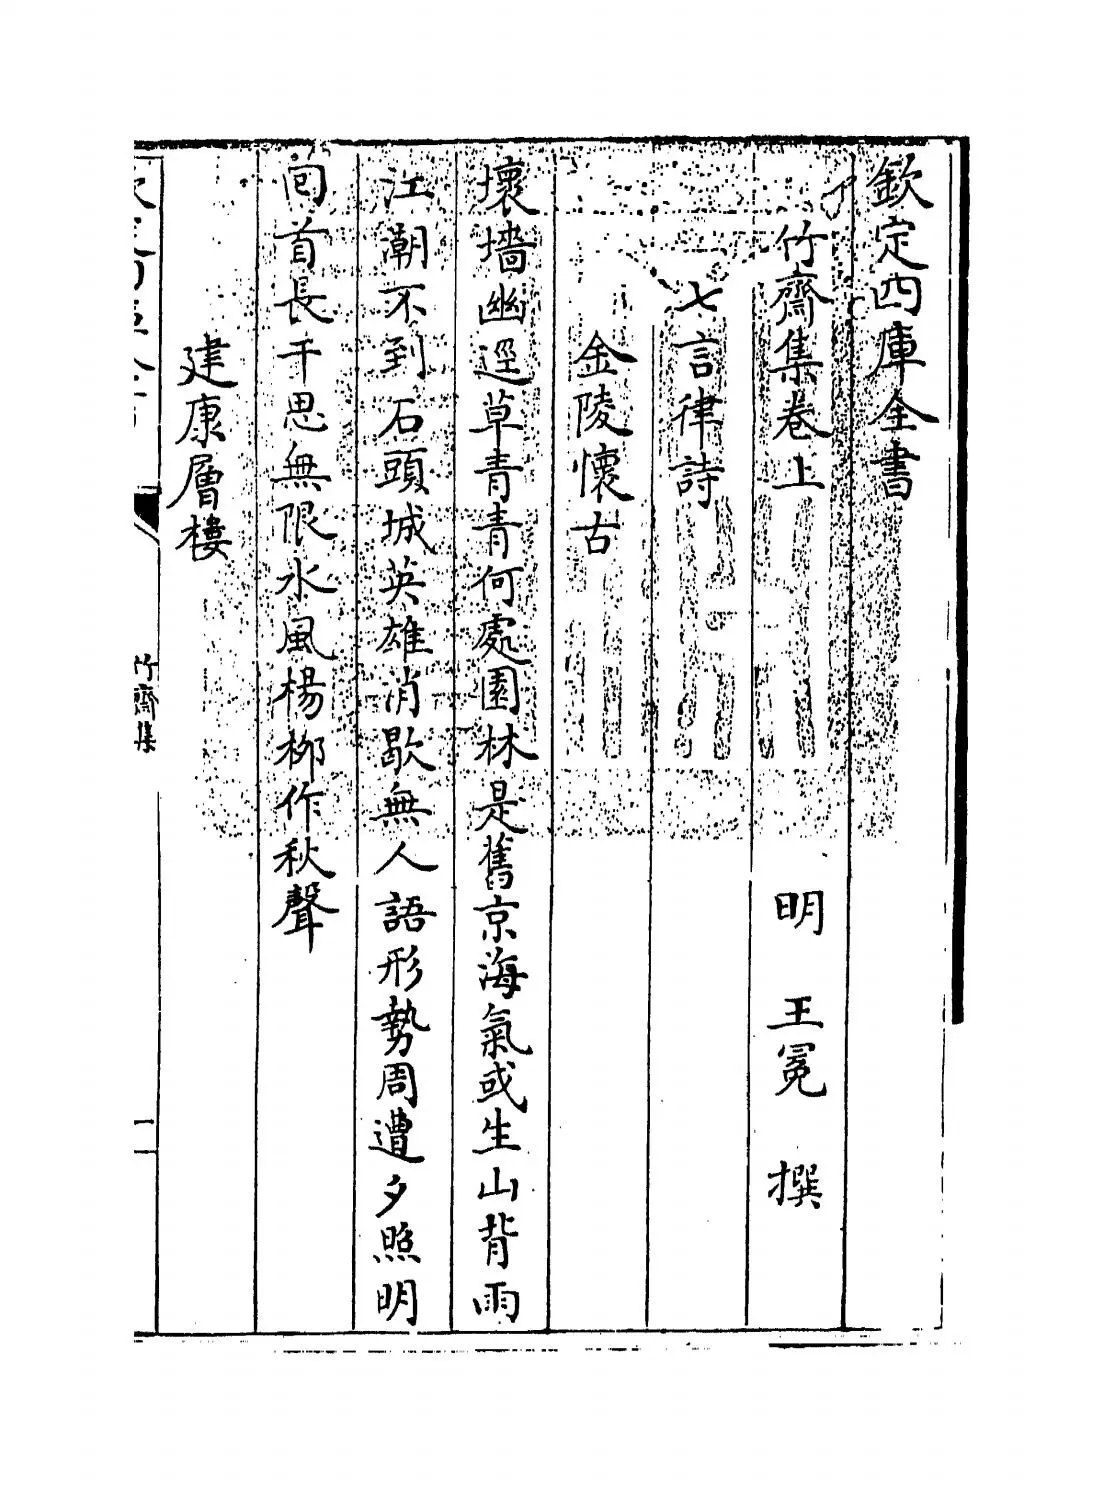 欽定四庫全書
竹齋集卷上　明　王冕　撰
七言律詩
金陵懷古
壞墻幽逕草青青何處園林是舊京海氣或生山背雨
江潮不到石頭城英雄消歇無人語形勢周遭夕照明
囘首長干思無限水風楊栁作秋聲
建康層樓
竹齋集
一